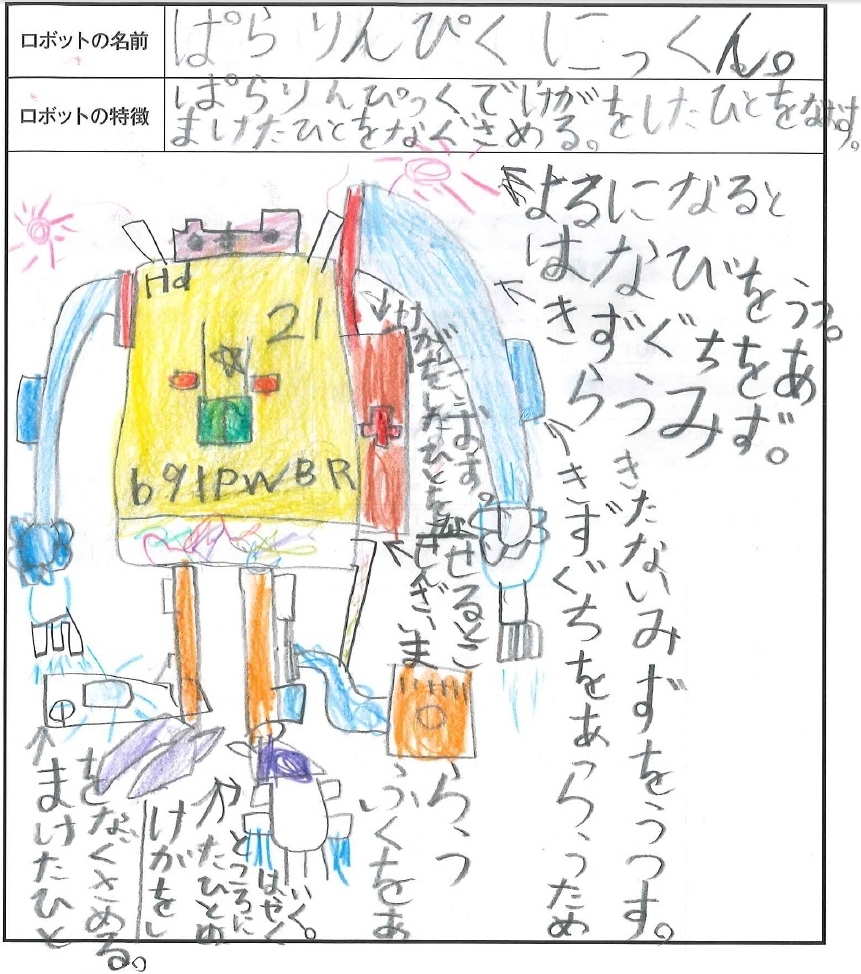 ロボットの名前
ぱらりんぴくにっくん。
ロボットの特徴
ぱらりんぴっくでけがをしたひとをなおす。
まけたひとをなぐさめる。
よるになると
はなびを
うつ。
きずぐちをあ
らうみず。
Hd
21
b91PWBR
けがをしたひとを
のせるとこ
きたないみずをうつす。
きずぐちをあらったため
ふくをあ
らう
まけたひと
をなぐさめる。
けがをし
たひとの
ところに
はやく
いく。